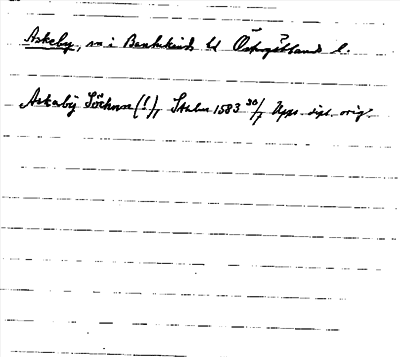 Askeby, sn i Bankekinds hd Östergötlands l.
Askaby Sochnn (!), Stubu 1583 30/7 Upps. dipl. orig.